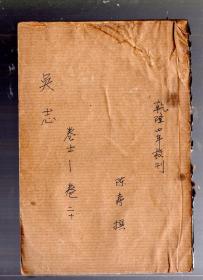 乾隆四年校刊
陈寿 撰
卷十一—卷二十
吳志